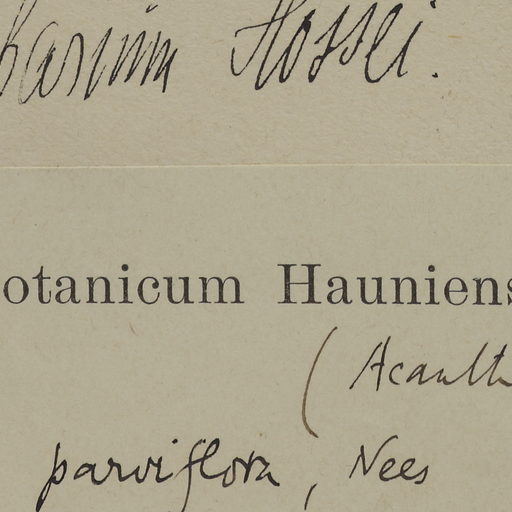 barium Hossei.
otanicum Hauniens
(Acanth
parviflora, Nees